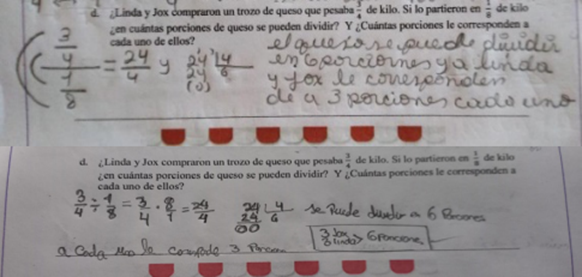 d. ¿Linda y Jox compraron un trozo de queso que pesaba 3/4 de kilo. Si lo partieron en 1/8 de kilo
¿en cuántas porciones de queso se pueden dividir? Y ¿Cuántas porciones le corresponden a
cada uno de ellos?
3/4 / 1/8 = 24/4 y 24 4 el queso se puede dividir
24 6 en 6 porciones y a linda
(0) y Jox le corresponden
de a 3 porciones cada uno
d. ¿Linda y Jox compraron un trozo de queso que pesaba 3/4 de kilo. Si lo partieron en 1/8 de kilo
¿en cuántas porciones de queso se pueden dividir? Y ¿Cuántas porciones le corresponden a
cada uno de ellos?
3/4 ÷ 1/8 = 3/4 · 8/1 = 24/4 24 4 se Puede a 6
24 6
00
3 Jox
3 linda > 6 Porciones
a Cada uno le 3